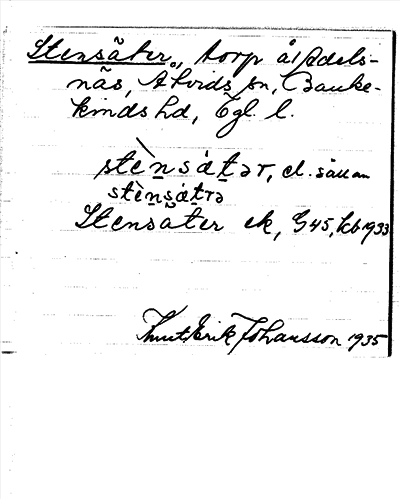 Stensäter, torp å Adels-
näs, Åtvids sn, Banke-
kinds hd, Ögl. l.
stènsátər, el. sällan
stènsátrə
Stensäter ek, G 45, kb 1933
Knut Erik Johansson 1935